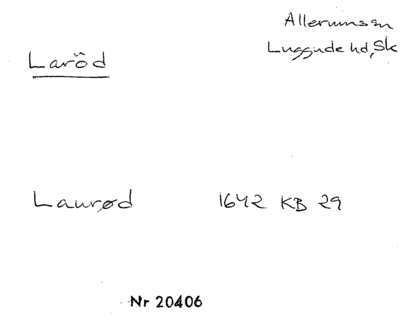 Allerums sn
Luggude hd, Sk
Laröd
Laurød 1642 KB 29
Nr 20406